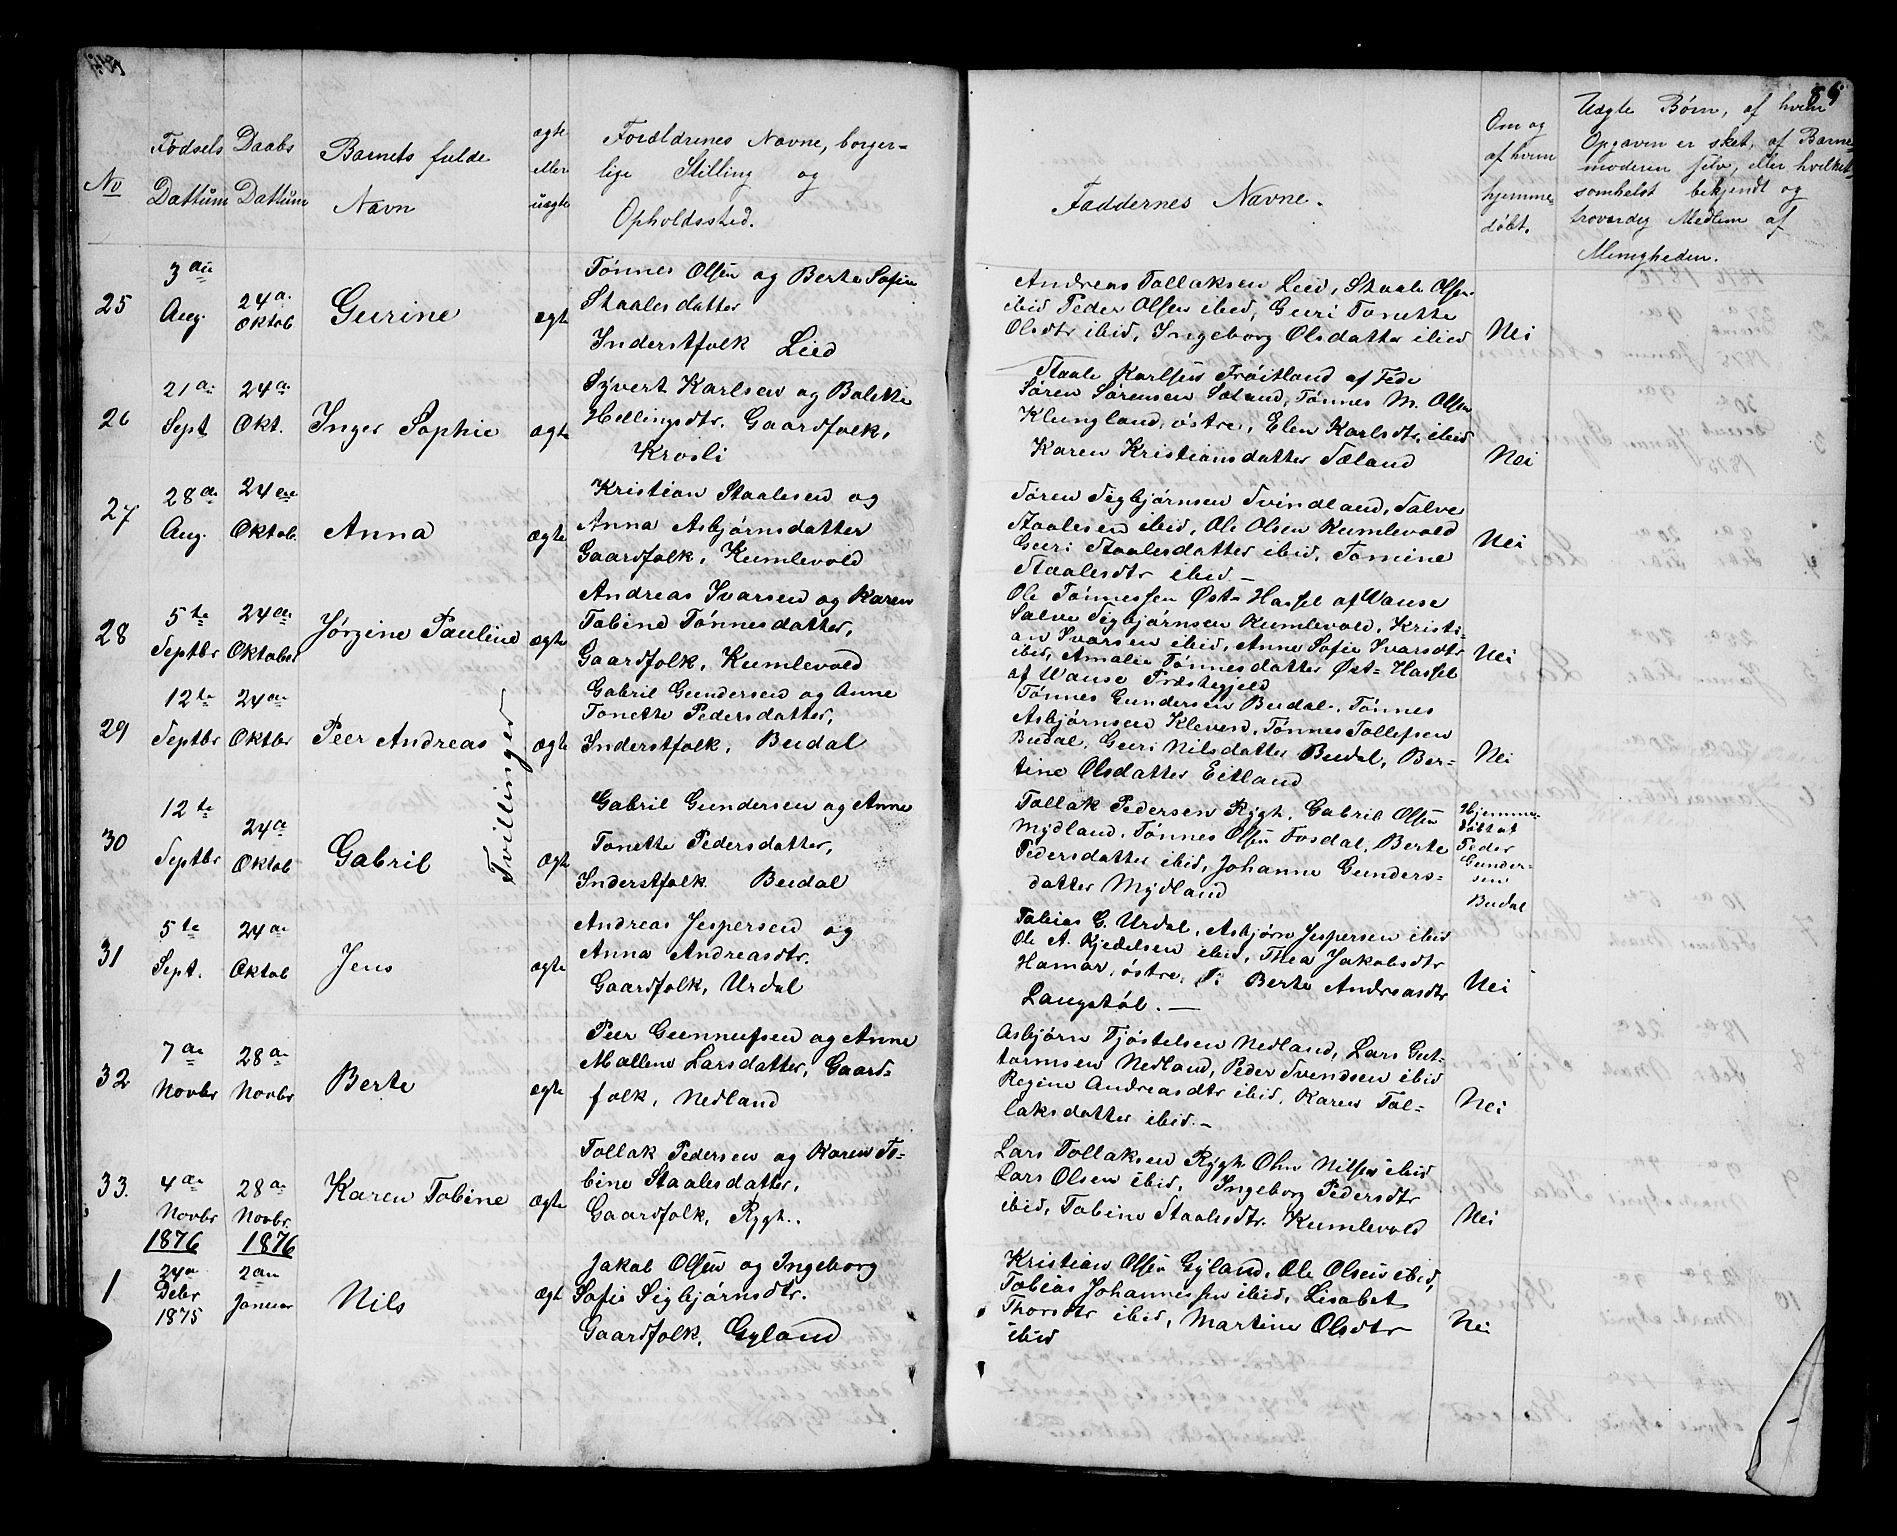 85
No
Fødsels
Dattum
Daabs
Dattum
Barnets fulde
Navn
ægte
eller
uægte
Forældrenes Navne, borger-
lige Stilling og
Opholdssted.
Faddernes Navne.
Om og
af hvem
hjemme-
døbt.
Uægte Børn, af hvem
Opgaven er sket, af Barne-
moderen selv, eller hvilket-
somhelst bekjendt og
troværdig Medlem af
Menigheden.
25
3die
Aug.
24de
Oktob
Gurine
ægte
Tønnes Olsen og Berte Sofie
Staalesdatter
Inderstfolk Lied
Andreas Tollaksen Lied, Staale Olsen
ibid Peder Olsen ibid, Guri Tonette
Olsdtr ibid, Ingeborg Olsdatter ibid
Nei
26
21de
Sept
24de
Okt.
Inger Sophie
ægte
Syvert Karlsen og Bolette
Hellingsdtr. Gaardfolk,
Krosli
Staale Karlsen Frøitland af Fede
Søren Sørensen Sæland, Tønnes M. Olsen
Klungland, østre, Elen Karlsdtr, ibid
Karen Kristiansdatter Sæland
Nei
27
28de
Aug.
24de
Oktob.
Anna
ægte
Kristian Staalesen og
Anna Asbjørnsdatter
Gaardfolk, Kumlevold
Søren Sigbjørnsen Svindland, Salve
Staalesen ibid, Ole Olsen Kumlevold
Guri Staalesdatter ibid, Tomine
Staalesdtr ibid –
Nei
28
5te
Septbr
24de
Oktober
Jørgine Pauline
ægte
Andreas Ivarsen og Karen
Tobine Tønnesdatter,
Gaardfolk, Kumlevold
Ole Tønnessen Øst-Hassel af Vanse
Salve Sigbjørnsen Kumlevold, Kristi-
an Ivarsen ibid, Anne Sofie Ivarsdtr
ibid, Amalie Tønnesdatter Øst-Hassel
af Wanse Præstegjeld
Nei
29
12te
Septbr
24de
Oktbr
Peer Andreas
Tvillinger
ægte
Gabril Gundersen og Anne
Tonette Pedersdatter,
Inderstfolk, Budal
Tønnes Gundersen Budal, Tønnes
Asbjørnsen Kleven, Tønnes Tollefsen
Budal, Guri Nilsdatter Budal, Ber-
tine Olsdatter Eitland
Nei
30
12te
Septbr
24de
Oktob
Gabril
ægte
Gabril Gundersen og Anne
Tonette Pedersdatter,
Inderstfolk Budal
Tollak Pedersen Rygh, Gabril Olsen
Mydland, Tønnes Olsen Fosdal, Berte
Pedersdatter ibid, Johanne Gunders-
datter Mydland
Hjemme-
døbt af
Peder
Gunder-
sen
Budal
31
5te
Sept.
24de
Oktob
Jens
ægte
Andreas Jespersen og
Anna Andreasdtr.
Gaardfolk, Urdal
Tobias G. Urdal, Asbjørn Jespersen ibid
Ole A. Kjedelsen ibid, Thea Jakobsdtr
Hamar, østre, Berte Andreasdtr
Langstøl. —
Nei
32
7de
Novbr
28de
Novbr
Berte
ægte
Peer Gunnufsen og Anne
Mallene Larsdatter, Gaard-
folk, Nedland
Asbjørn Fjøstelsen Nedland, Lars Gut-
tormsen Nedland, Peder Svendsen ibid
Regine Andreasdtr ibid, Karen Tol-
laksdatter ibid. –
Nei
33.
4de
Novbr
28de
Novbr.
Karen Tobine
ægte
Tollak Pedersen og Karen To-
bine Staalesdatter,
Gaardfolk, Rygh.
Lars Tollaksen Rygh Ole Nilsen ibid
Lars Olsen ibid, Ingeborg Pedersdtr
ibid, Tobine Staalesdtr. Kumlevold
Nei
1876
1876
1
24de
Debr
1875
2den
Januar
Nils
ægt
Jakob Olsen og Ingeborg
Sofie Sigbjørnsdtr.
Gaardfolk, Gyland
Kristian Olsen Gyland, Ole Olsen ibid,
Tobias Johannessen ibid, Lisabet
Thorsdtr ibid, Martine Olsdtr
ibid
Nei